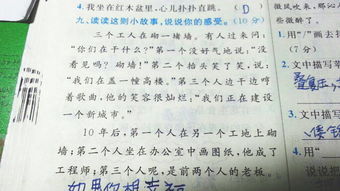 4.我坐在红木盆里,心儿扑扑直跳。(D)
九、读读这则小故事,说说你的感受。(10分)
三个工人在砌一堵墙。有人过来问:
“你们在干什么?”第一个没好气地说:“没
看见吗?砌墙!”第二个抬头笑了笑,说:
“我们在盖一幢高楼。”第三个人边干边哼
着歌曲,他的笑容很灿烂:“我们正在建设
一个新城市。”
10年后,第一个人在另一个工地上砌
墙;第二个人坐在办公室中画图纸,他成了
工程师;第三个人呢,是前两个人的老板。
如果你想幸福
微风吹来,那沁
些微醉了。
1.用“/”画去括
(7分)
2.文中描写草
3.文中描写
4.用“
说说把